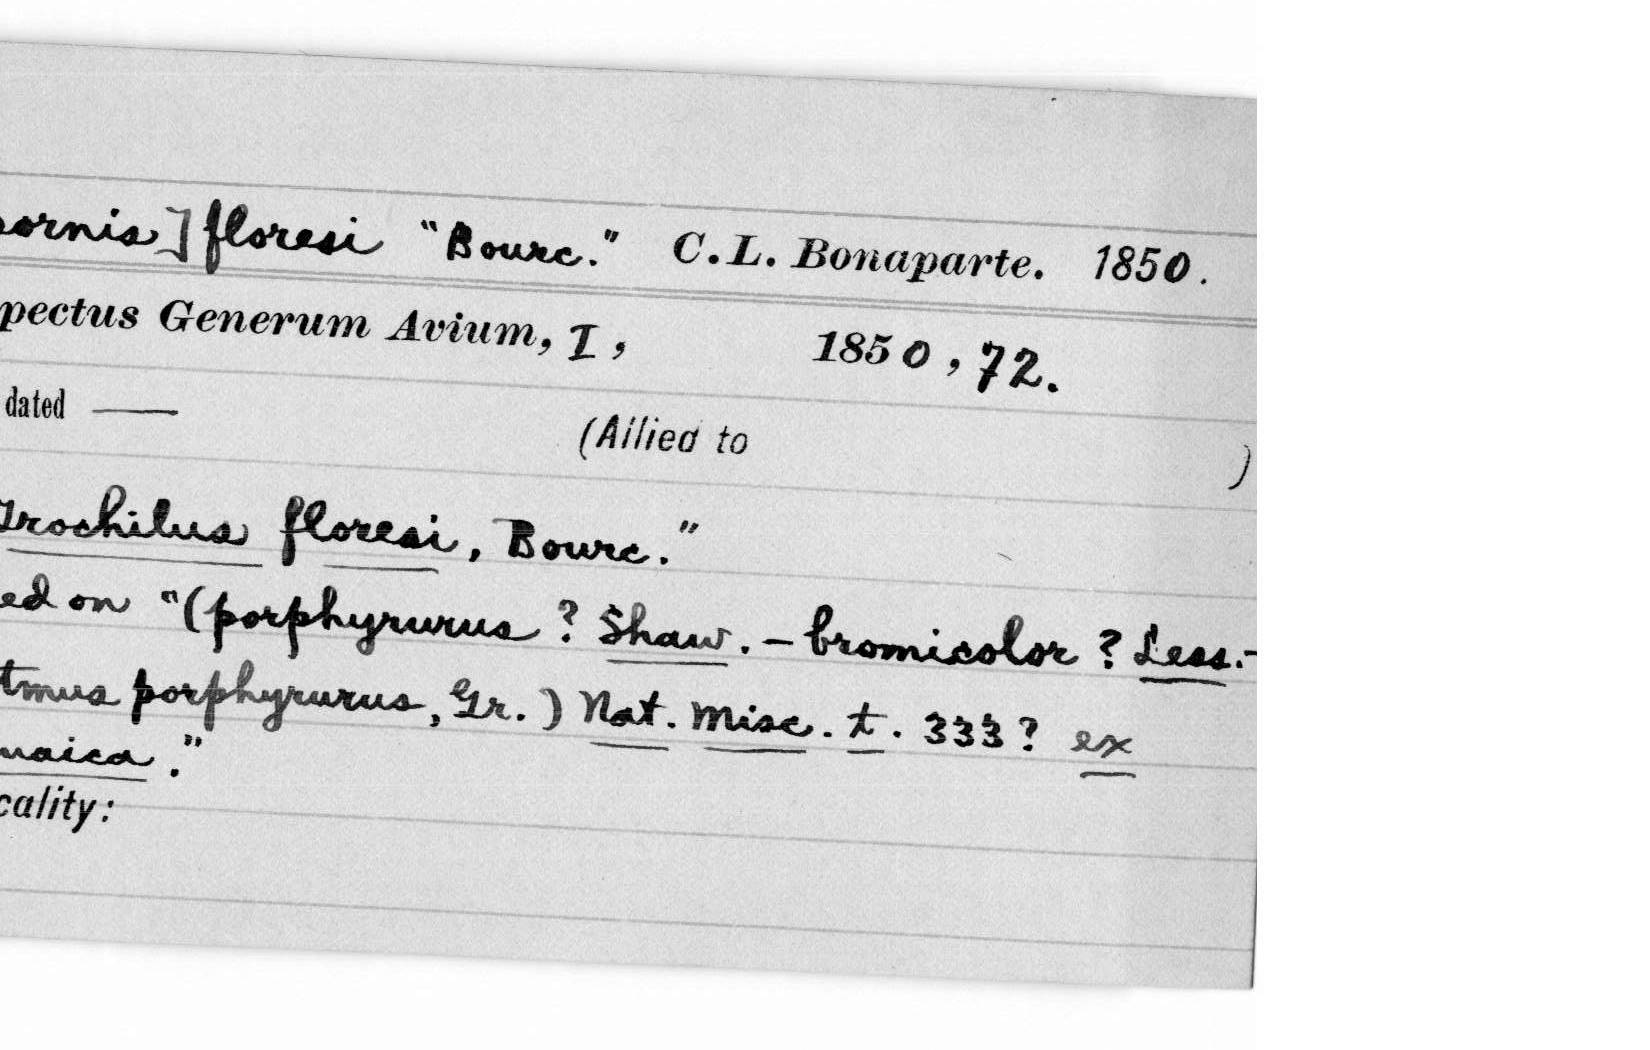 ornis] floresi "Bourc." C.L. Bonaparte. 1850.
pectus Generum Avium, I, 1850, 72.
dated —
(Allied to )
Trochilus floresi, Bourc."
ed on "(porphyrurus ? Shaw. - bromicolor ? Less.-
tmus porphyrurus, Gr.) Nat. Misc. t. 333? ex
maica."
cality: